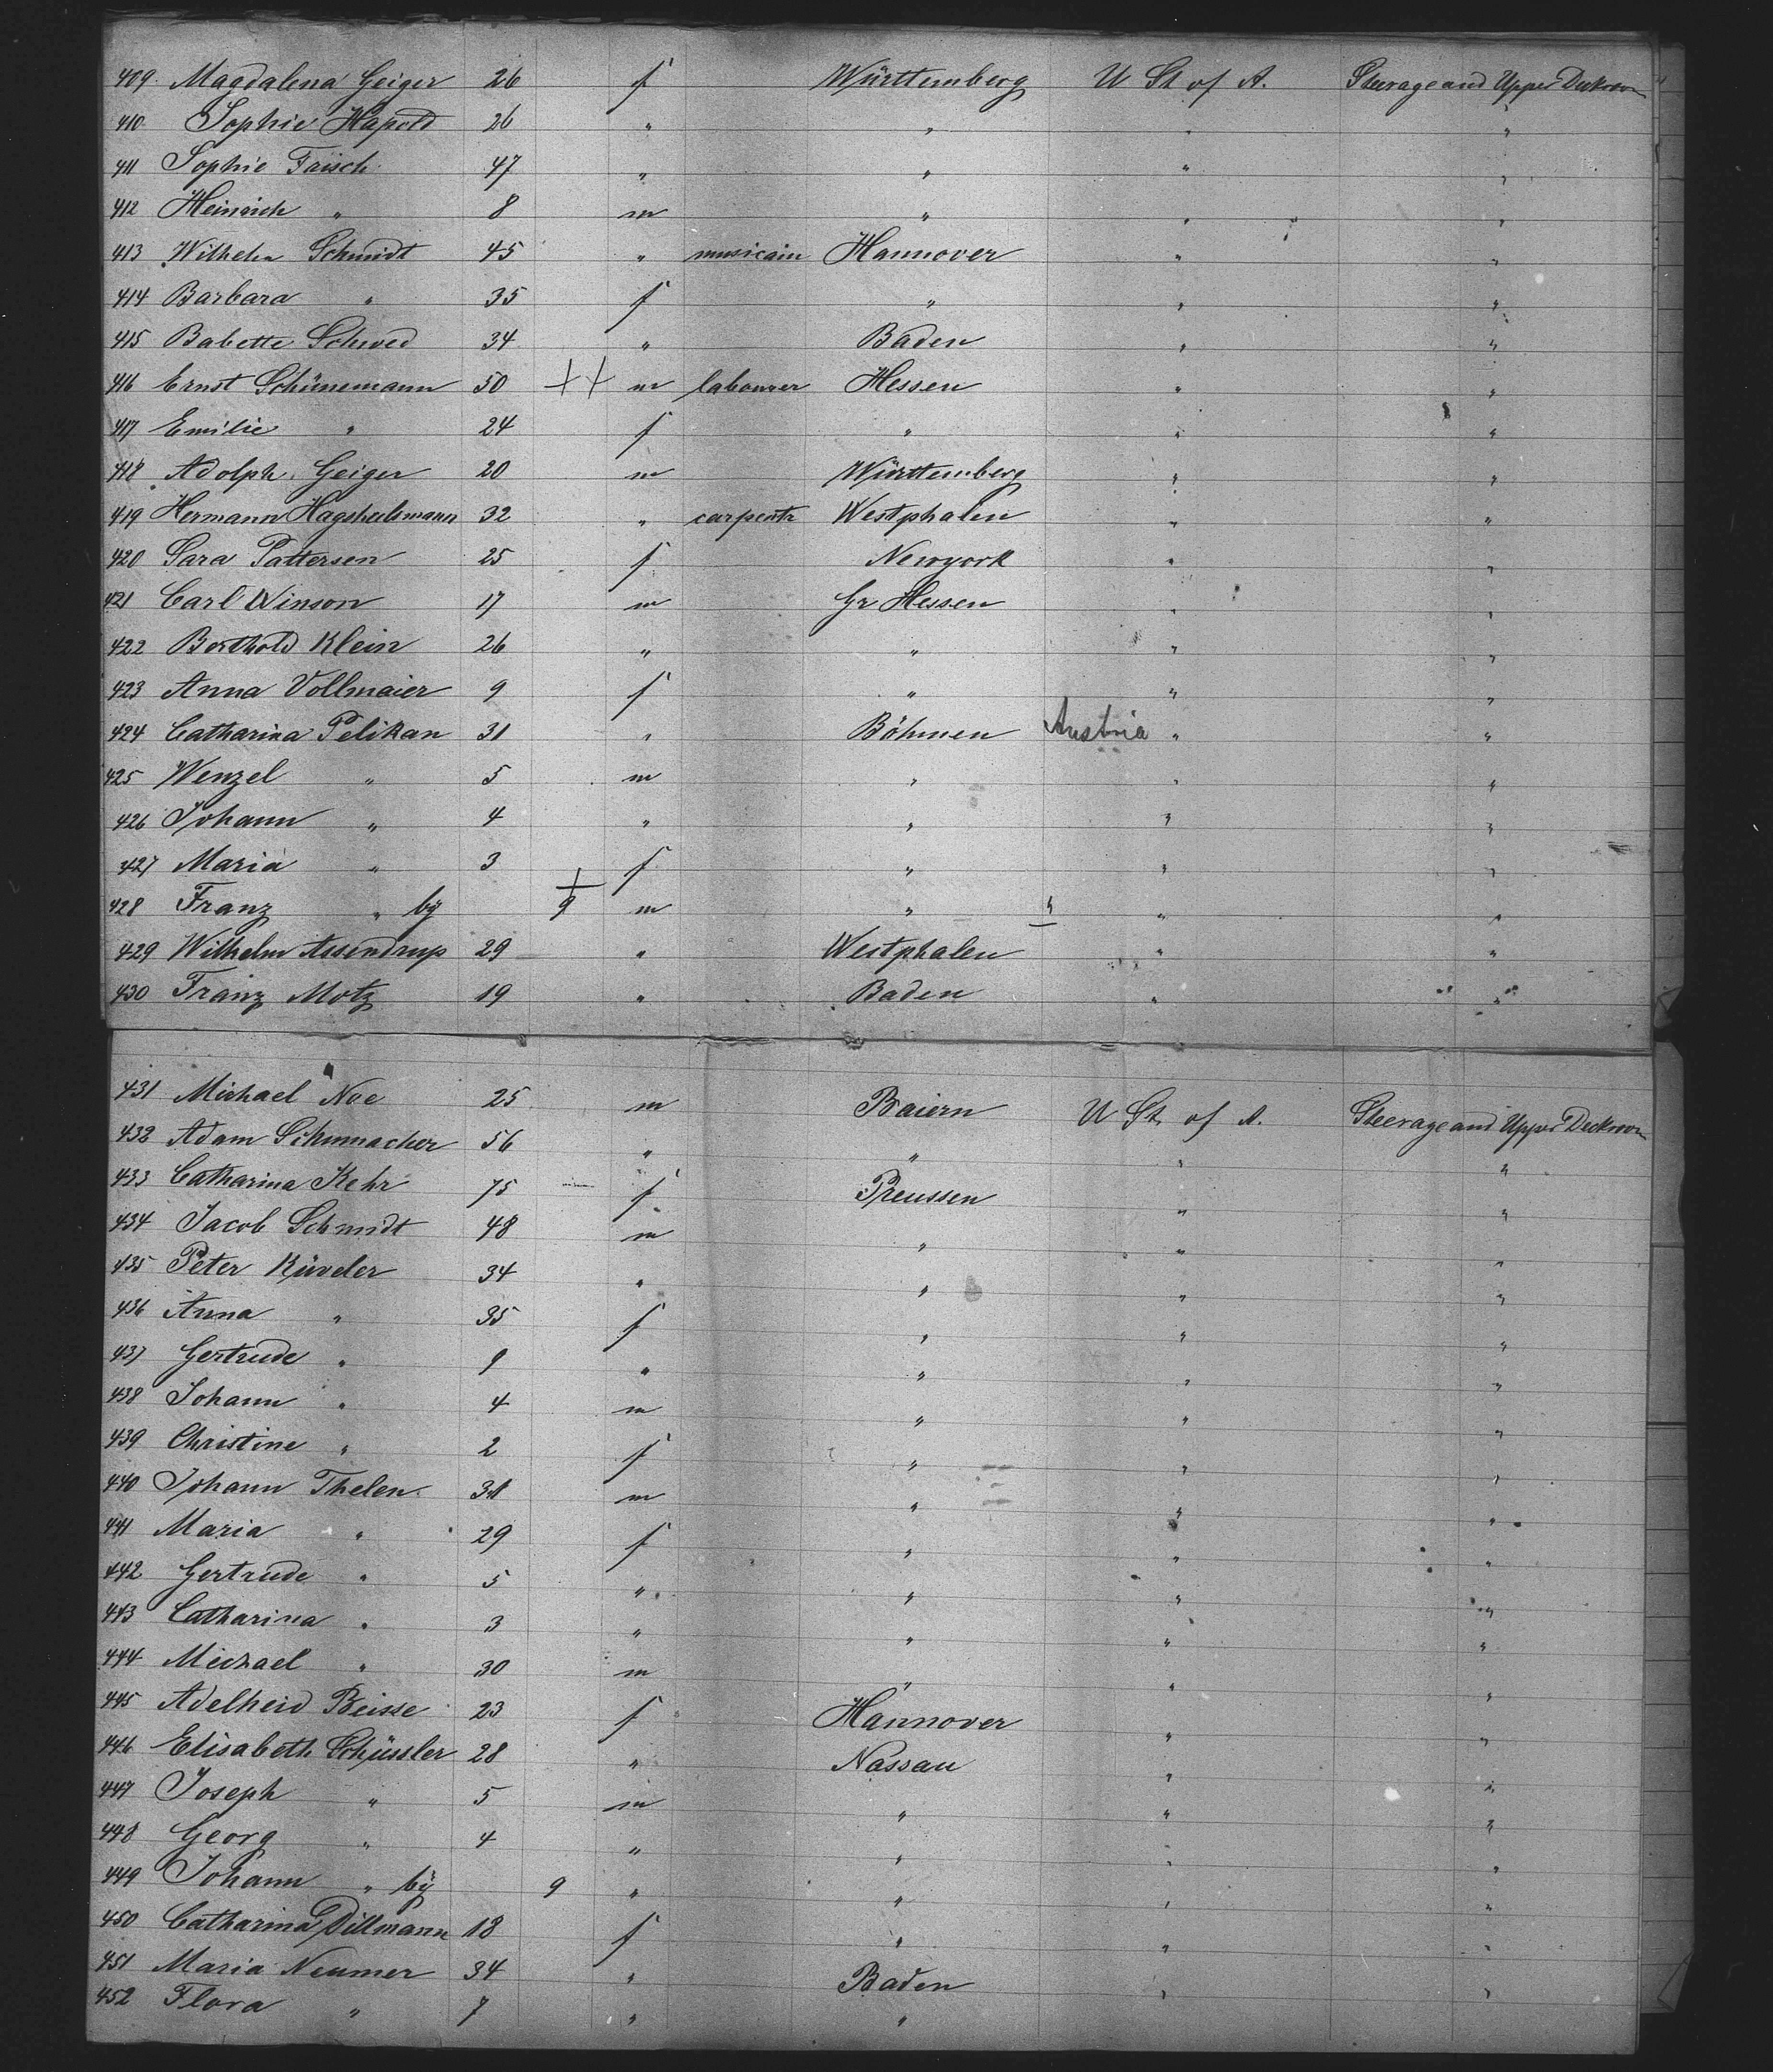 409. Magdalena Geiger 26 f Württemberg U St of A. Steerage and Upper Deckroom
410 Sophie Hapold 26 " " " "
411 Sophie Frisch 47 " " " "
412 Heinrich " 8 m " " "
413 Wilhelm Schmidt 45 " musicain Hannover " "
414 Barbara " 35 f " " "
415 Babette Schwed 34 " Baden " "
416 Ernst Schünemann 50 m labourer Hessen " "
417 Emilie " 24 f " " "
418 Adolph Geiger 20 m Württemberg " "
419 Hermann 32 " carpentr Westphalen " "
420 Sara Pattersen 25 f Newyork " "
421 Carl Winson 17 m Gr Hessen " "
422 Berthold Klein 26 " " " "
423 Anna Vollmaier 9 f " " "
424 Catharina Pelikan 31 " Böhmen Austria " "
425 Wenzel " 5 m " " "
426 Johann " 4 " " " "
427 Maria " 3 f " " "
428 Franz " by 9 m " " " "
429 Wilhelm Assendrup 29 " Westphalen " "
430 Franz Motz 19 " Baden " "
431 Michael Noe 25 m Baiern U St. of A. Steerage and Upper Deckroom
432 Adam Schumacher 56 " " " "
433 Catharina Kehr 75 f Preussen " "
434 Jacob Schmidt 48 m " " "
435 Peter Küveler 34 " " " "
436 Anna " 35 f " " "
437 Gertrude " 9 " " " "
438 Johann " 4 m " " "
439 Christine " 2 f " " "
440 Johann Thelen 31 m " " "
441 Maria " 29 f " " "
442 Gertrude " 5 " " " "
443 Catharina " 3 " " " "
444 Michael " 30 m " " "
445 Adelheid Beisse 23 f Hannover " "
446 Elisabeth Schüssler 28 " Nassau " "
447 Joseph " 5 m " " "
448 Georg " 4 " " " "
449 Johann " by 9 " " " "
450 Catharina Dillmann 18 f " " "
451 Maria Neumer 34 " Baden " "
452 Flora " 7 " " " "